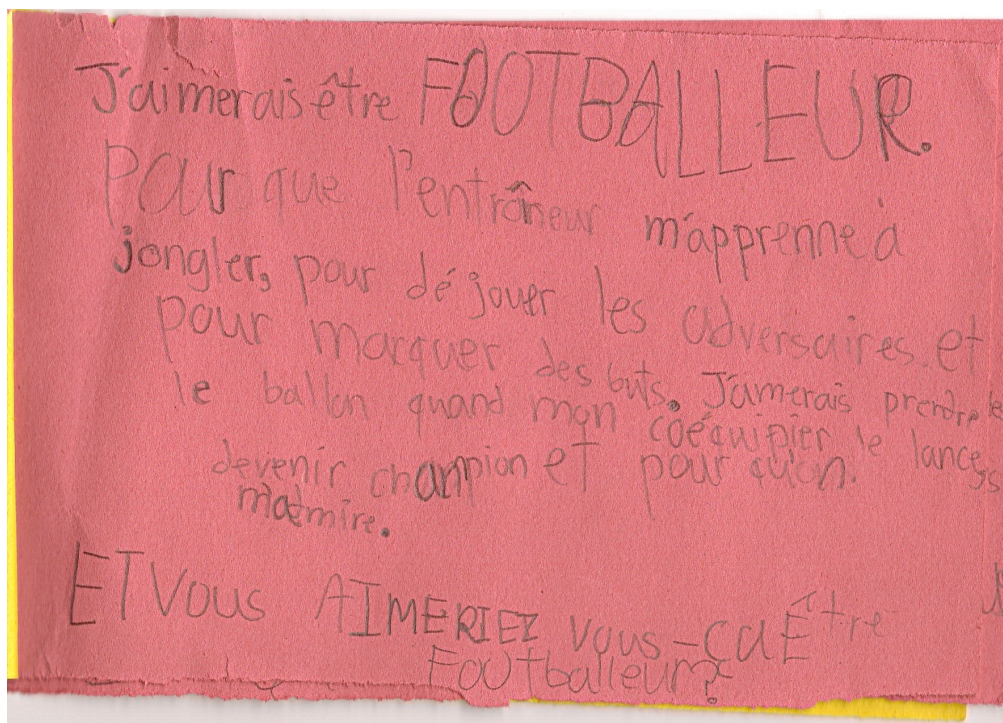 J'aimerais être FOOTBALLEUR.
Pour que l'entrâineur m'apprenne à
jongler, pour déjouer les adversaires et
pour marquer des buts. J'aimerais prendre
le ballon quand mon coéquipier le lance,
devenir champion et pour qu'on
m'admire.
ET Vous AIMERIEZ vous-ça Être
Footballeur?